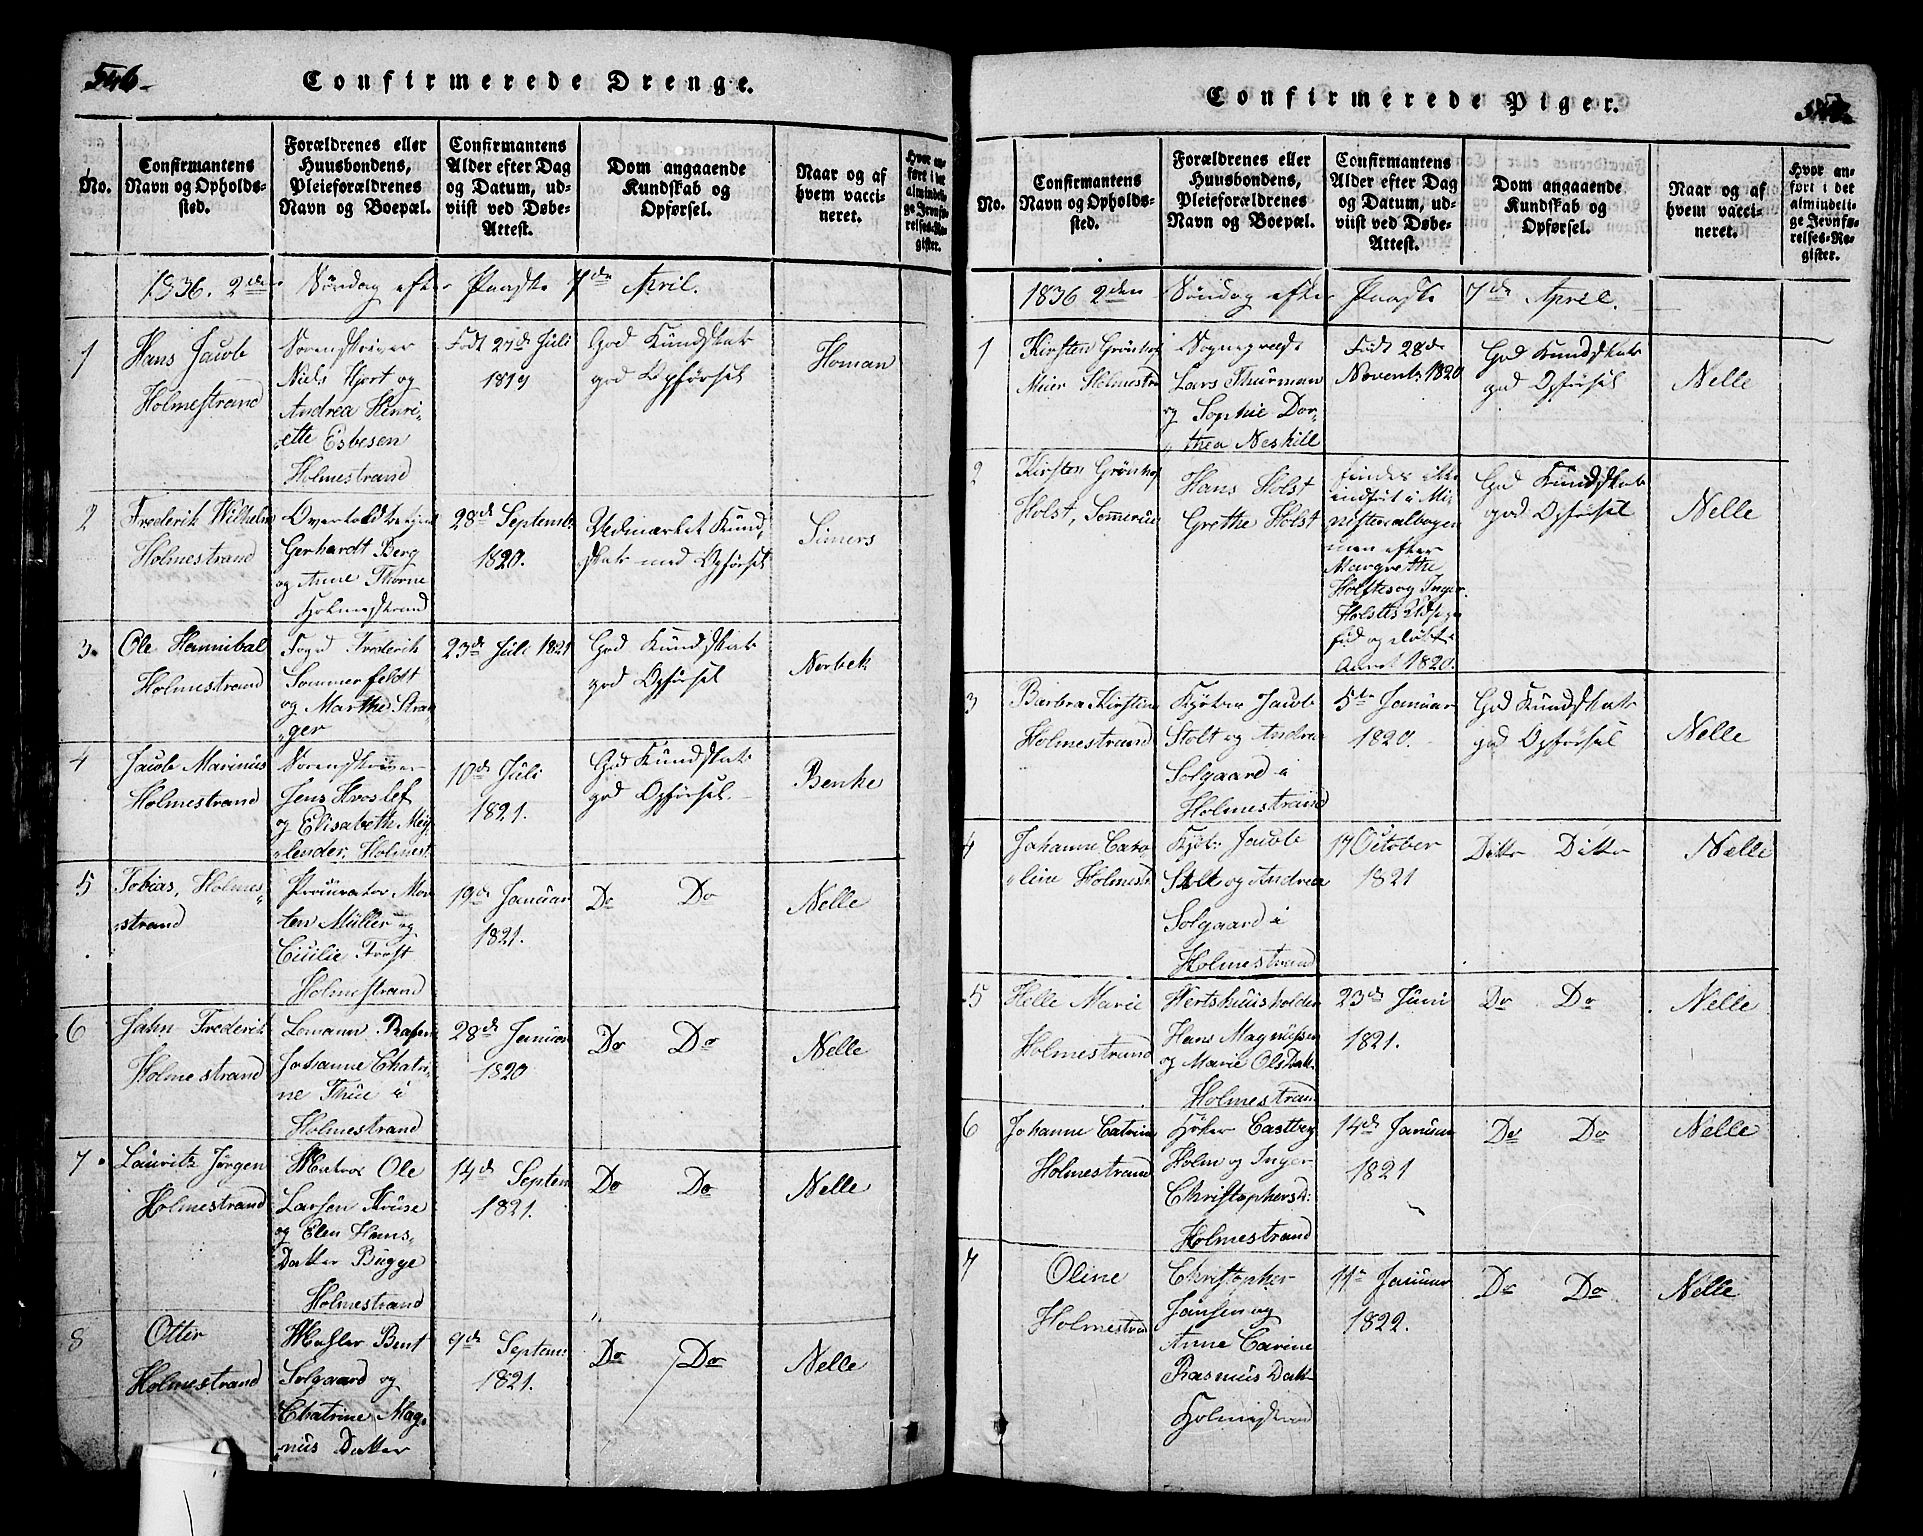 546.
Confirmerede Drenge.
No.
Confirmantens
Navn og Opholds-
sted.
Forældrenes eller
Huusbondens,
Pleieforældrenes
Navn og Boepæl.
Confirmantens
Alder efter Dag
og Datum, ud-
viist ved Døbe-
Attest.
Dom angaaende
Kundskab og
Opførsel.
Naar og af
hvem vacci-
neret.
Hvor an-
ført i det
almindeli-
ge Jevnfø-
relses-Re-
gister.
1836. 2den Søndag efter Paaske 7de April.
1
Hans Jacob
Holmestrand
Sorenskriver
Niels Hjort og
Andrea Henri-
ette Esbesen
Holmestrand
Født 27de Juli
1819
God Kundskab
god Opførsel
Homan
2
Frederik Wilhelm
Holmestrand
Gerhardt Berg
og Anne Thorne
Holmestrand
28de Septemb.
1820.
Udmærket Kund-
skab med Opførsel
Simers
3.
Ole Hannibal
Holmestrand
Foged Frederik
Sommerfeldt
og Marthe Stran-
ger
23de Juli 1821
God Kundskab
god Opførsel
Norbek
4
Jacob Marinus
Holmestrand
Sorenskriver
Jens Hroslef
og Elisabeth Mey-
lender, Holmest.
10de Juli
1821.
God Kundskab
god Opførsel.
Benke
5
Tobias, Holme-
strand
Procurator Mor-
ten Müller og
Cicilie Frost
Holmestrand
19de Januar
1821.
Do Do
Nelle
6
Jahn Frederik
Holmestrand
Lomann
Johanne Chatri-
ne Thue i
Holmestrand
28de Januar
1820
Do Do
Nelle
7.
Lauritz Jørgen
Holmestrand
Matros Ole
Larsen Kruse
og Elen Hans-
Datter Bugge
Holmestrand
14de Septem
1821.
Do Do
Nelle
8
Otter
Holmestrand
Mægler Bent
Solgaard og
Chatrine Mag-
nus Datter
9de Septem:
1821.
Do Do
Nelle
Confirmerede Piger.
No.
Confirmantens
Navn og Opholds-
sted.
Forældrenes eller
Huusbondens,
Pleieforældrenes
Navn og Boepæl.
Confirmantens
Alder efter Dag
og Datum, ud-
viist ved Døbe-
Attest.
Dom angaaende
Kundskab og
Opførsel.
Naar og af
hvem vacci-
neret.
Hvor an-
ført i det
almindeli-
ge Jevnfø-
relses-Re-
gister.
1836 2den Søndag efter Paaske 7de April.
1
Kirsten Grønhof
Meier Holmestra
Sognepræst
Lars Thurman
og Sophie Dor-
thea Neskill
Født 28de
Novemb. 1820
God Kundskab
god Opførsel
Nelle
2
Kirsten Grønhof
Holst, Sommerüe
Hans Holst
Grethe Holst
findes ikke
indført i Mi-
nisterialbogen
men efter
Margrethe
Holstes og Inger
Holstes Udsigen
fød og døbt i
Aaret 1820.
God Kundskab
god Opførsel
Nelle
3
Barbra Kirstine
Holmestrand
Kjøbm Jacob
Stolt og Andrea
Solgaard i
Holmestrand
5te Januar
1820.
God Kundskab
god Opførsel
Nelle
4
Johanne Caro-
line Holmest.
Kjøb: Jacob
Stolt og Andrea
Solgaard i
Holmestrand
17 October
1821
Ditto Ditto
Nelle
5
Helle Marie
Holmestrand
Wertshuusholder
Hans Magnussen
og Marie OlsDatt.
Holmestrand
23de Juni
1821.
Do Do
Nelle
6
Johanne Catrine
Holmestrand
Høker Castberg
Holm og Inger
ChristophersD:
Holmestrand
14de Januar
1821
Do Do
Nelle
7
Oline
Holmestrand
Christopher
Jansen og
Anne Carine
Rasmus Datt
Holmestrand
11te Januar
1822.
Do Do
Nelle